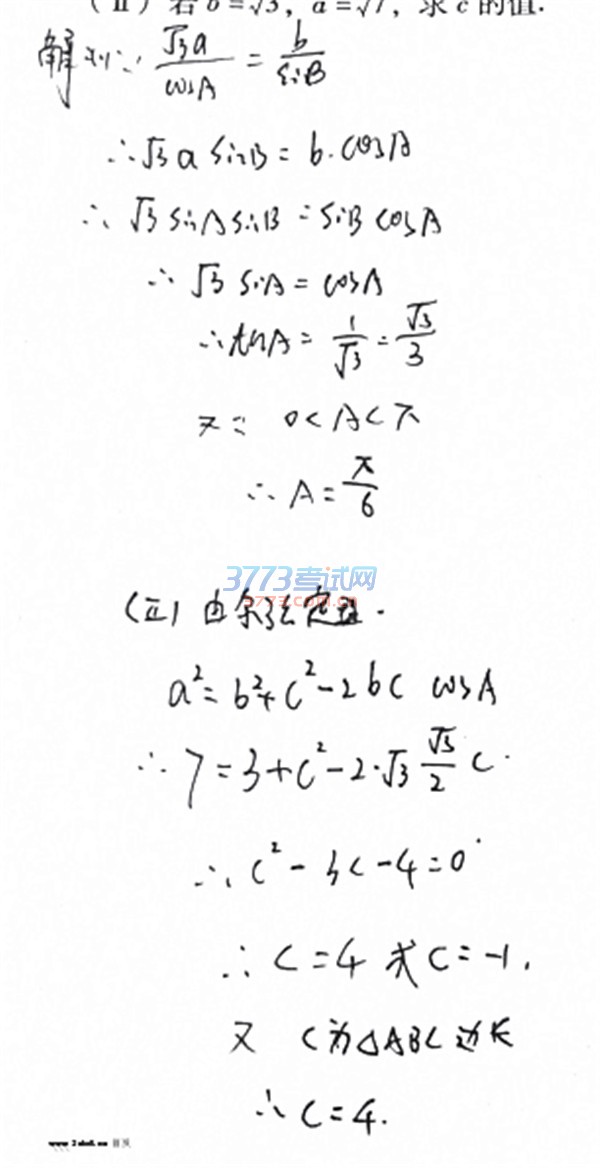 (Ⅱ) 若 b=√3, a=√7, 求 c 的值.
解 (1) ∵ √3a/cosA = b/sinB
∴ √3 a sinB = b·cosA
∴ √3 sinA sinB = sinB cosA
∴ √3 sinA = cosA
∴ tanA = 1/√3 = √3/3
又∵ 0<A<π
∴ A = π/6
3773考试网
3773.com.cn
(Ⅱ) 由余弦定理.
a²=b²+c²-2bc cosA
∴ 7=3+c²-2·√3 √3/2 c.
∴ c²-3c-4=0
∴ c=4 或 c=-1.
又 c为△ABC边长
∴ c=4.